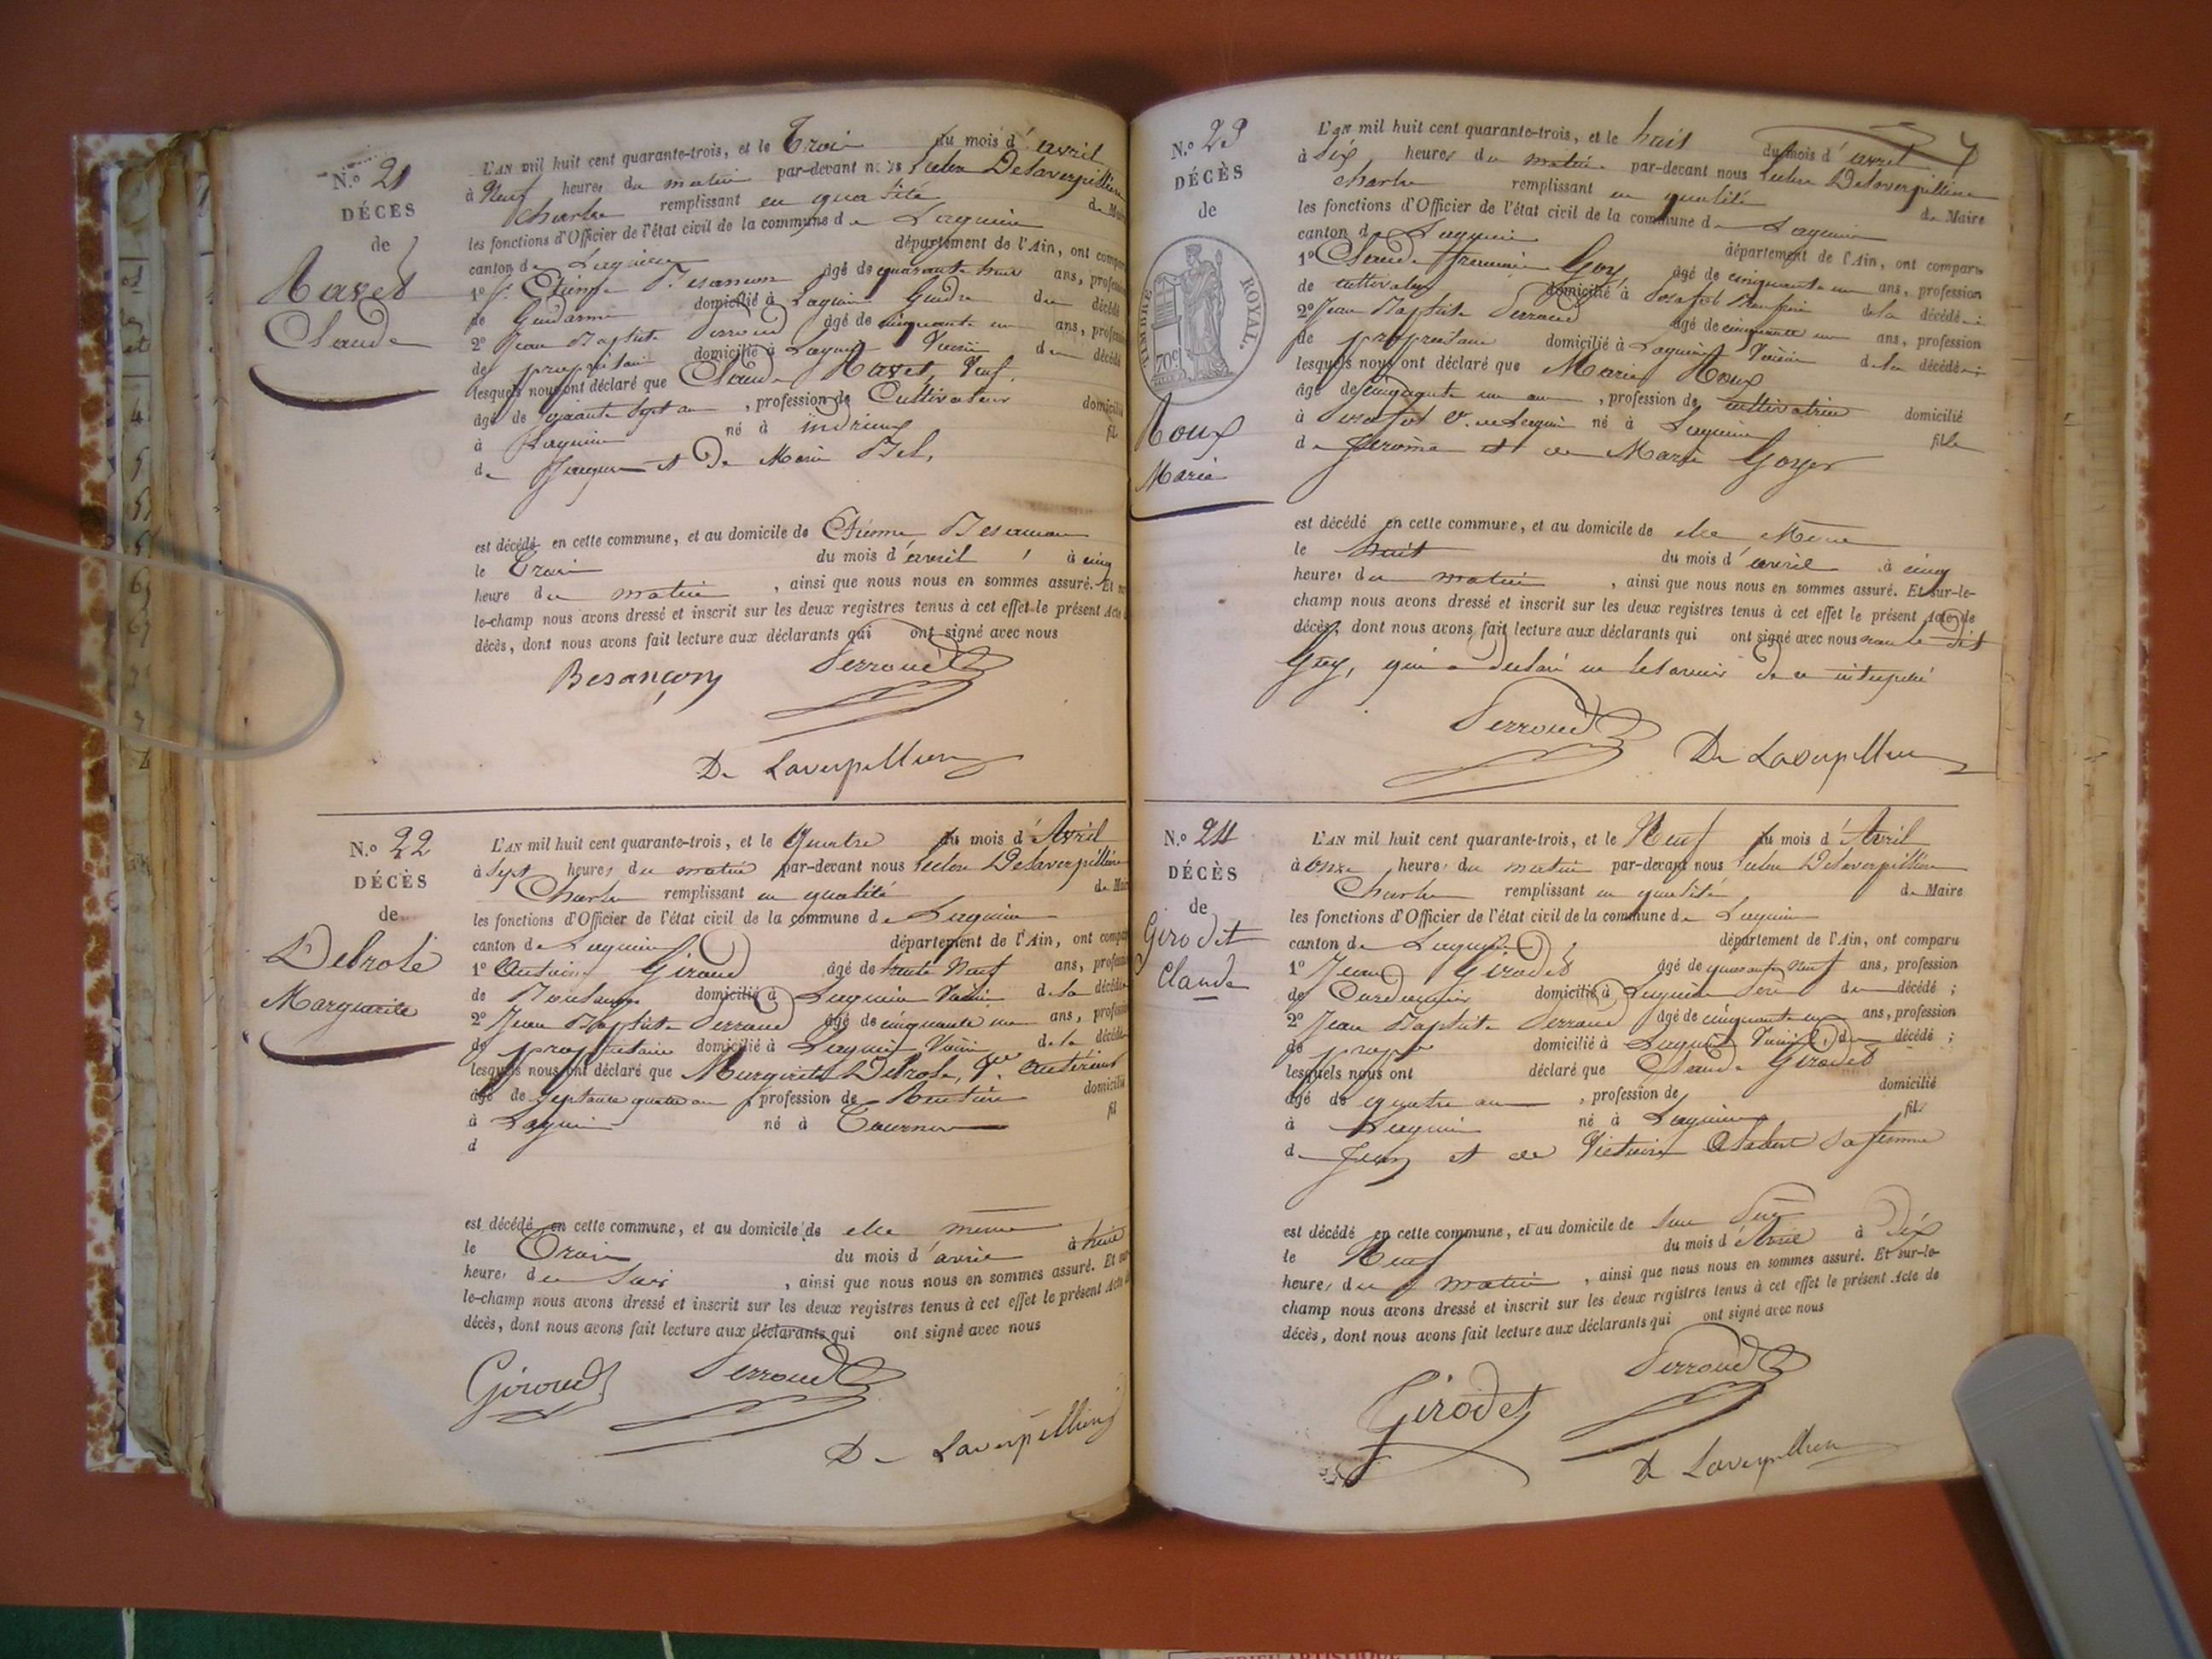 N.º 21
DÉCÈS
de
Ravet
Claude
L'AN mil huit cent quarante-trois, et le Trois du mois d'avril
à Neuf heures du matin par-devant nous Delaverpillière
Charles remplissant en qualité de Maire
les fonctions d'Officier de l'état civil de la commune de Lagnieu
canton de Lagnieu département de l'Ain, ont comparu
1º Etienne Besançon âgé de quarante huit ans, profession
de Gendarme domicilié à Lagnieu Gendre du décédé
2º Jean Baptiste Perroud âgé de cinquante un ans, profession
de propriétaire domicilié à Lagnieu Voisin du décédé
lesquels nous ont déclaré que Claude Ravet, Veuf,
âgé de sept ans, profession de Cultivateur domicilié
à Lagnieu né à indrieux fil
de Jacques et de Marie Bel,
est décédé en cette commune, et au domicile de Etienne Besançon
le Trois du mois d'avril à cinq
heure du matin, ainsi que nous nous en sommes assuré. Et sur
le-champ nous avons dressé et inscrit sur les deux registres tenus à cet effet le présent Acte de
décès, dont nous avons fait lecture aux déclarants qui ont signé avec nous
Besançon Perroud
De Laverpilliere
N.º 22
DÉCÈS
de
Debrose
Marguerite
L'AN mil huit cent quarante-trois, et le Quatre du mois d'Avril
à Sept heures du matin par-devant nous Delaverpillière
Charles remplissant en qualité de Maire
les fonctions d'Officier de l'état civil de la commune de Lagnieu
canton de Lagnieu département de l'Ain, ont comparu
1º Antoine Giroud âgé de trente Neuf ans, profession
de Boulanger domicilié à Lagnieu Voisin de la décédée
2º Jean Baptiste Perroud âgé de cinquante un ans, profession
de propriétaire domicilié à Lagnieu Voisin de la décédée
lesquels nous ont déclaré que Marguerite Debrose, Vve
âgé de Septante quatre ans, profession de Rentière domicilié
à Lagnieu né à Tournus fil
d
est décédé en cette commune, et au domicile de elle même
le Trois du mois d'avril à huit
heures du Soir, ainsi que nous nous en sommes assuré. Et sur
le-champ nous avons dressé et inscrit sur les deux registres tenus à cet effet le présent Acte de
décès, dont nous avons fait lecture aux déclarants qui ont signé avec nous
Giroud Perroud
De Laverpilliere
N.º 23
DÉCÈS
de
TIMBRE ROYAL.
70c
Roux
Marie
L'AN mil huit cent quarante-trois, et le huit du mois d'avril
à Six heures du matin par-devant nous Delaverpillière
Charles remplissant en qualité de Maire
les fonctions d'Officier de l'état civil de la commune de Lagnieu
canton de Lagnieu département de l'Ain, ont comparu
1º Claude Goy, âgé de cinquante un ans, profession
de cultivateur domicilié à de la décédée
2º Jean Baptiste Perroud âgé de cinquante un ans, profession
de propriétaire domicilié à Lagnieu Voisin de la décédée
lesquels nous ont déclaré que Marie Roux
âgé de cinquante un ans, profession de cultivatrice domicilié
à né à Lagnieu fille
de Jerome et de Marie Goyer
est décédé en cette commune, et au domicile de elle Même
le huit du mois d'avril à cinq
heures du matin, ainsi que nous nous en sommes assuré. Et sur-le-
champ nous avons dressé et inscrit sur les deux registres tenus à cet effet le présent Acte de
décès, dont nous avons fait lecture aux déclarants qui ont signé avec nous non le dit
Goy, qui a déclaré ne le savoir de ce interpellé
Perroud De Laverpilliere
N.º 24
DÉCÈS
de
Girodet
Claude
L'AN mil huit cent quarante-trois, et le Neuf du mois d'Avril
à onze heures du matin par-devant nous Delaverpillière
Charles remplissant en qualité de Maire
les fonctions d'Officier de l'état civil de la commune de Lagnieu
canton de Lagnieu département de l'Ain, ont comparu
1º Jean Girodet âgé de quarante Neuf ans, profession
de Cordonnier domicilié à Lagnieu Père du décédé ;
2º Jean Baptiste Perroud âgé de cinquante un ans, profession
de propre domicilié à Lagnieu Voisin du décédé ;
lesquels nous ont déclaré que Claude Girodet
âgé de quatre ans, profession de domicilié
à Lagnieu né à Lagnieu fils
de Jean et de Victoire sa femme
est décédé en cette commune, et au domicile de Son Père
le Neuf du mois d'Avril à Dix
heures du matin, ainsi que nous nous en sommes assuré. Et sur-le-
champ nous avons dressé et inscrit sur les deux registres tenus à cet effet le présent Acte de
décès, dont nous avons fait lecture aux déclarants qui ont signé avec nous
Girodet Perroud
De Laverpilliere